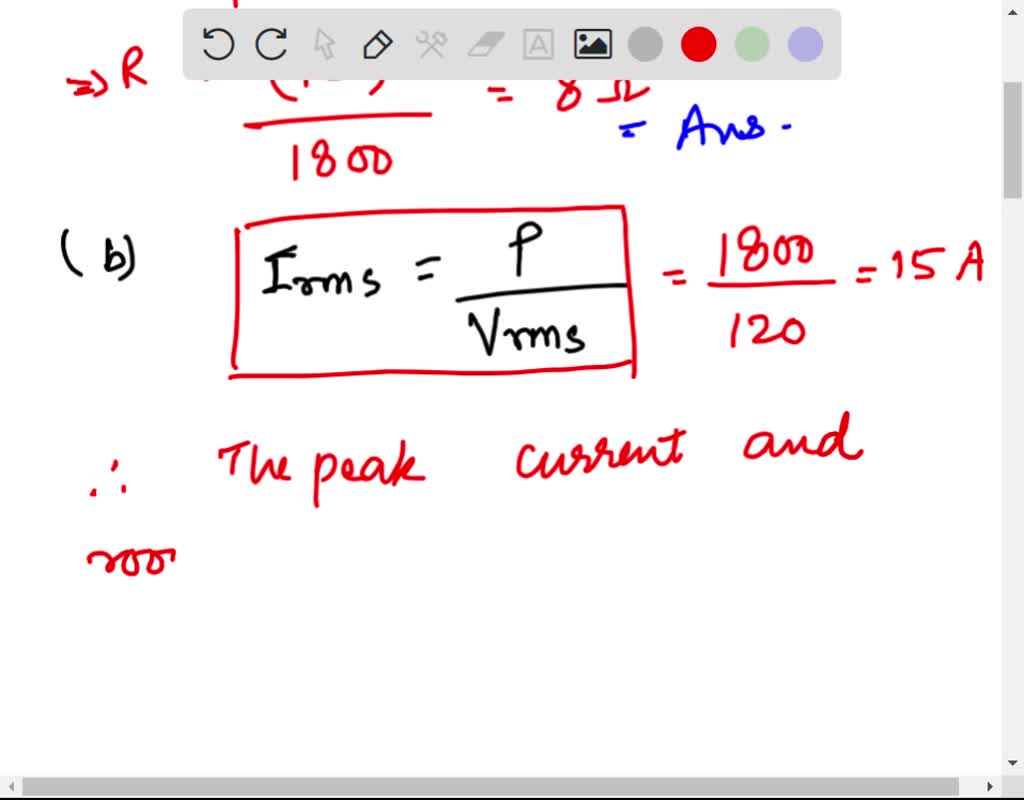 => R = 8 Ω
1800
= Ans.
(b) Irms = P / Vrms = 1800 / 120 = 15 A
∴ The peak current and
roo